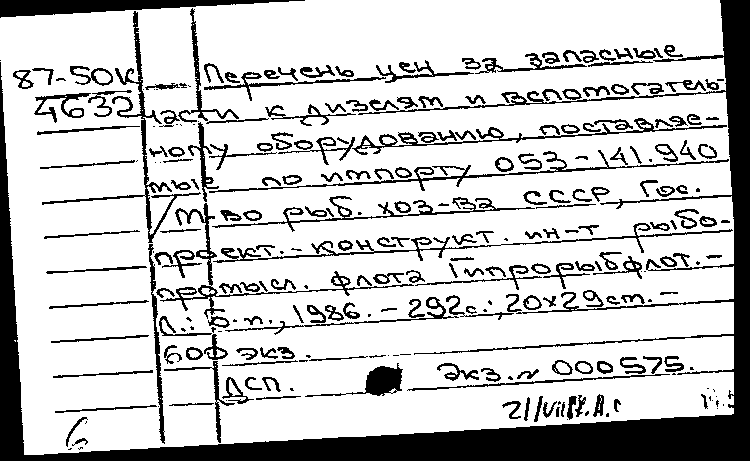 87-50к Перечень цен за запасные
4632 части к дизелям и вспомогатель-
ному оборудованию, поставляе-
мые по импорту 053-141.940
/М-во рыб. хоз-ва СССР, Гос.
проект.-конструкт. ин-т рыбо-
промысл. флота Гипрорыбфлот.-
Л.: Б.и., 1986. - 292с.; 20х29см. -
600 экз.
ДСП. Экз. N 000575.
6